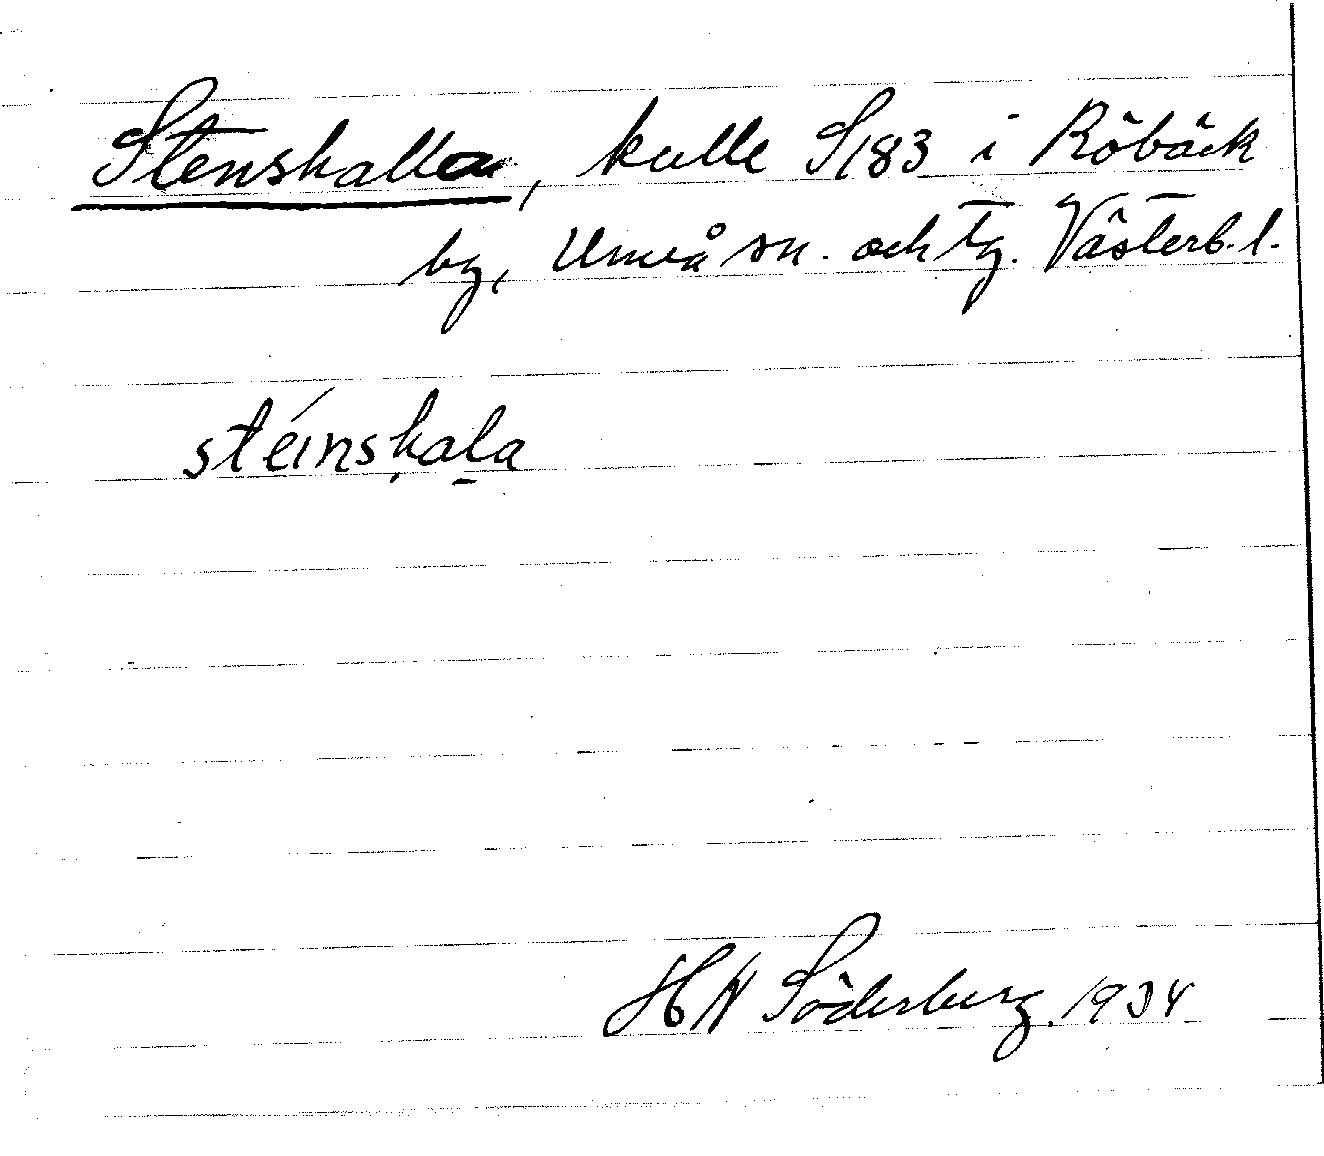 Stenskalla, kulle S183 i Röbäck
by, Umeå sn. och tg. Västerb. l.
stéinskala
HN Söderberg. 1934